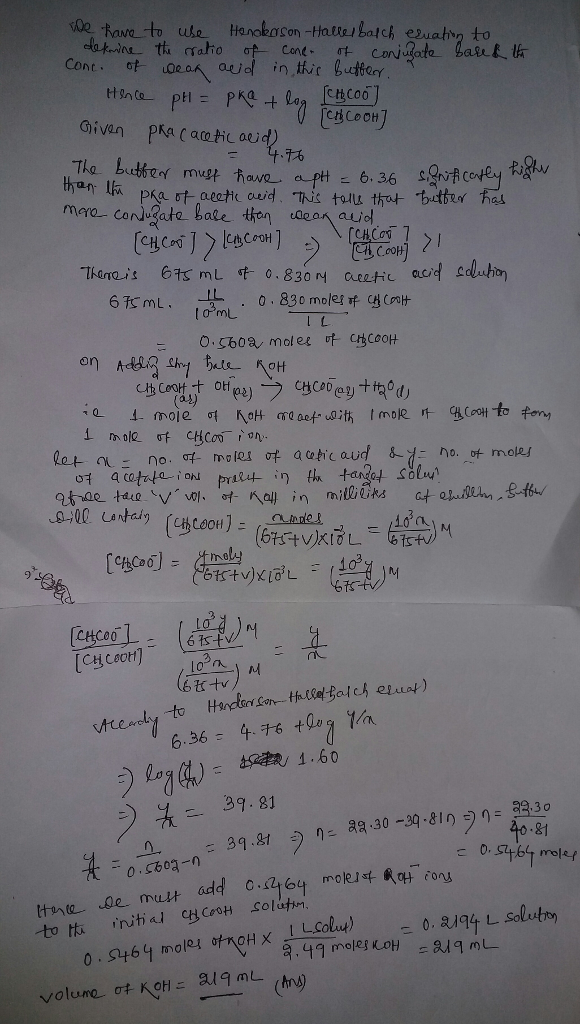 We have to use Henderson-Hasselbalch equation to
define the ratio of conc. of conjugate base & the
conc. of weak acid in this buffer.
Hence pH = pKa + log [CH3COO-]/[CH3COOH]
Given pKa (acetic acid)
= 4.76
The buffer must have a pH = 6.36 significantly higher
than the pKa of acetic acid. This tells that buffer has
more conjugate base than weak acid
[CH3COO-] > [CH3COOH] ⇒ [CH3COO-]/[CH3COOH] > 1
There is 675 mL of 0.830 M acetic acid solution
675 mL. 1L/10³mL . 0.830 moles of CH3COOH/1L
= 0.5602 moles of CH3COOH
on Adding base KOH
CH3COOH(aq) + OH-(aq) → CH3COO-(aq) + H2O(l)
ie 1 mole of KOH react with 1 mole of CH3COOH to form
1 mole of CH3COO- ion.
let x = no. of moles of acetic acid & y = no. of moles
of acetate ions present in the target solun
If we take 'V' vol. of KOH in milliliters at equilbm, buffer
will contain [CH3COOH] = x moles/(675+V)x10⁻³ L = (10³x/675+V) M
[CH3COO-] = y moles/(675+V)x10⁻³ L = (10³y/675+V) M
[CH3COO-]/[CH3COOH] = (10³y/675+V) M/(10³x/675+V) M = y/x
According to Henderson Hasselbalch equat)
6.36 = 4.76 + log y/x
⇒ log (y/x) = 1.60
⇒ y/x = 39.81
y/x = n/0.5602-n = 39.81 ⇒ n = 22.30 - 39.81n ⇒ n = 22.30/40.81
= 0.5464 moles
Hence we must add 0.5464 moles of KOH ions
to the initial CH3COOH solution.
0.5464 moles of KOH x 1 L solun)/2.49 moles KOH = 0.2194 L solution
= 219 mL
volume of KOH = 219 mL (Ans)